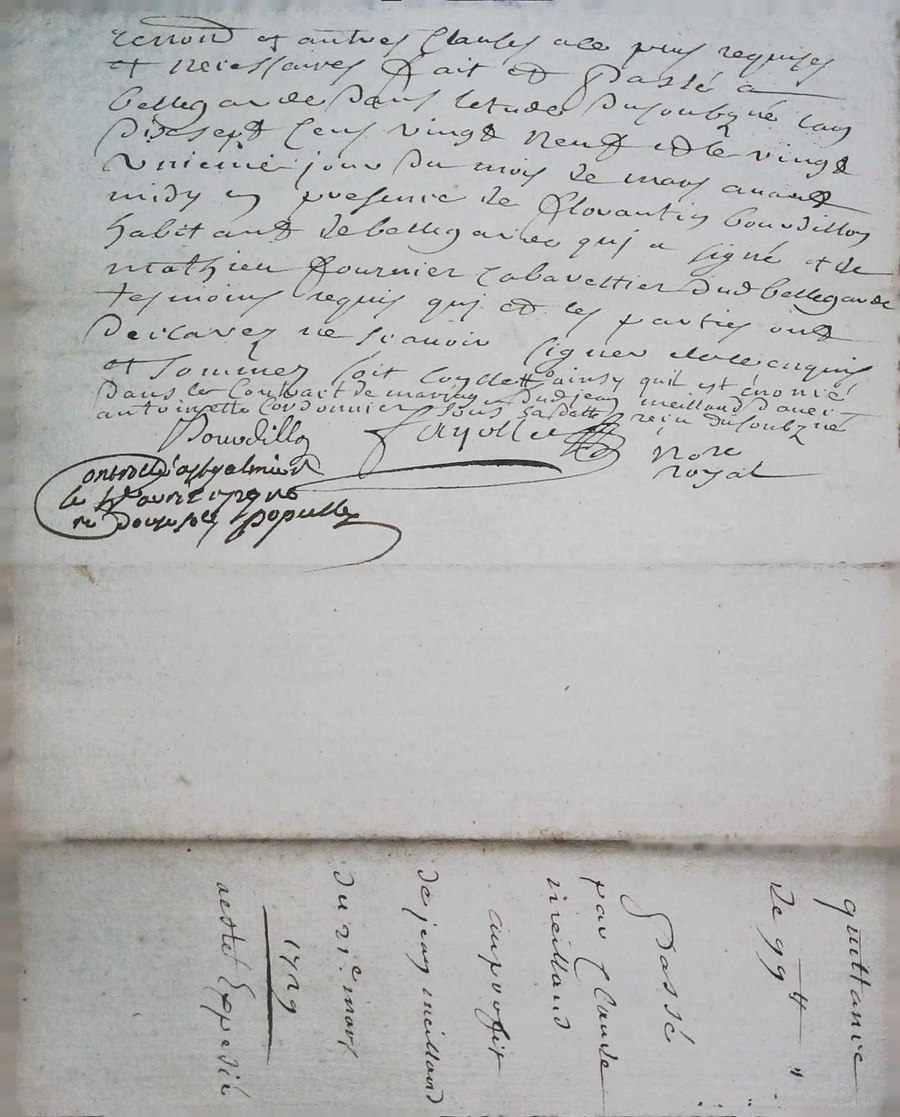 et autres clauses a ce plus requises
et necessaires fait et passé a
bellegarde dans letude du soubzné lan
dix sept cens vingt neuf et le vingt
unieme jour du mois de mars avant
midy en presence de florantin bourdillon
habitant de bellegarde qui a signé et de
mathieu fournier cabarettier dud bellegarde
tesmoins requis qui et les parties ont
declarez ne scavoir signer de ce enquis
et sommez soit ainsy quil est enoncé
dans le Contrait de mariage dud jean meilland
antoinette Cordonnier recu du soubzné
Bourdillon
nore
royal
le avril 1729
quittance
de 99 tt "
Passé
par Claude
meilland
au profit
de jean meilland
du 21e mars
1729
aesté Expedié